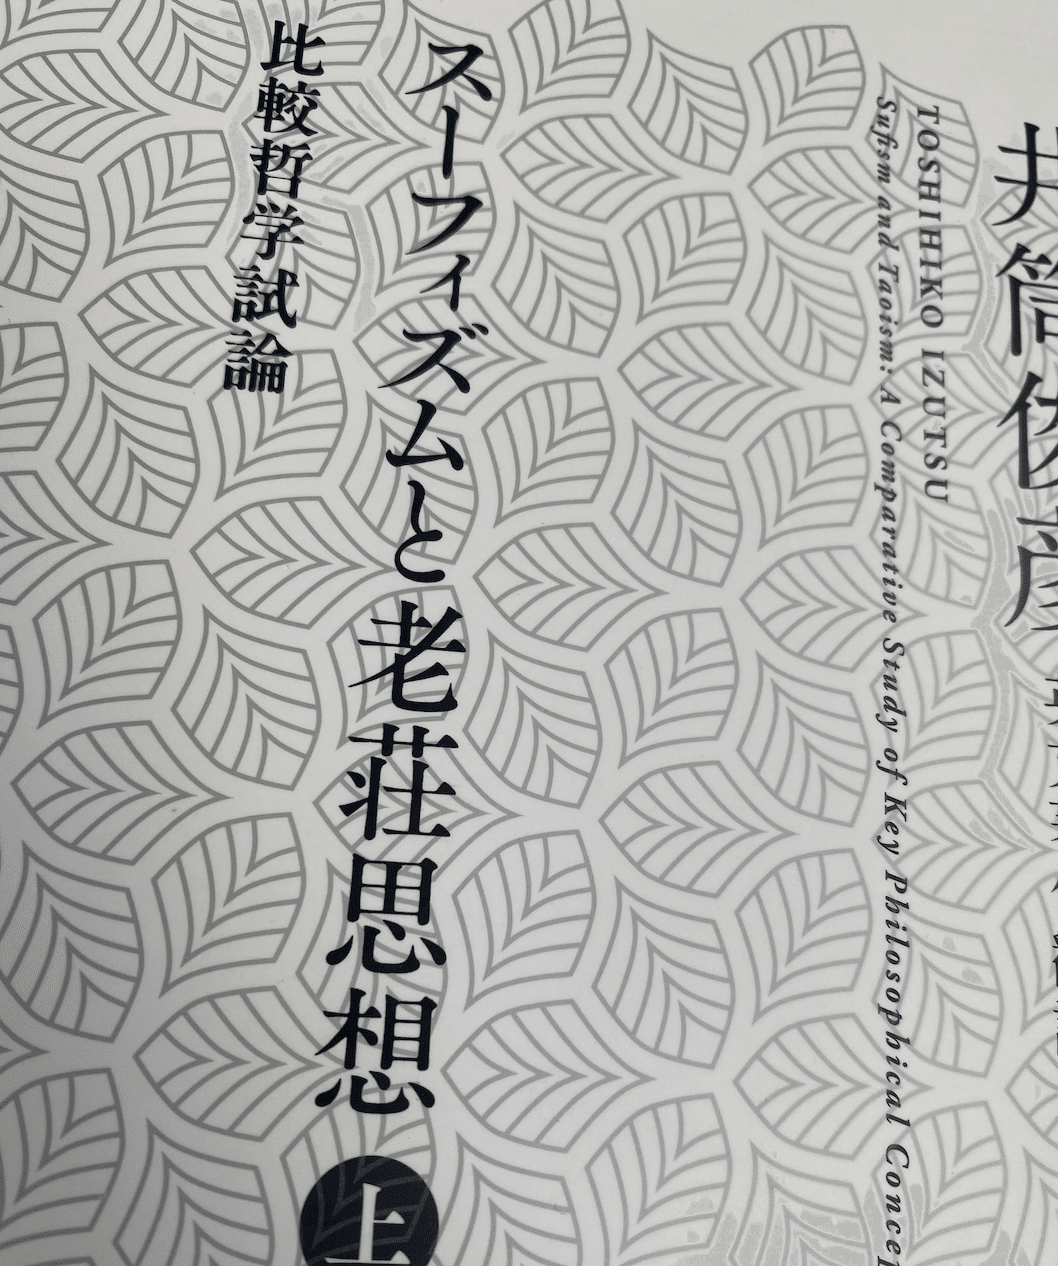 井筒俊彦
TOSHIHIKO IZUTSU
Sufism and Taoism: A Comparative Study of Key Philosophical
スーフィズムと老荘思想
上
比較哲学試論